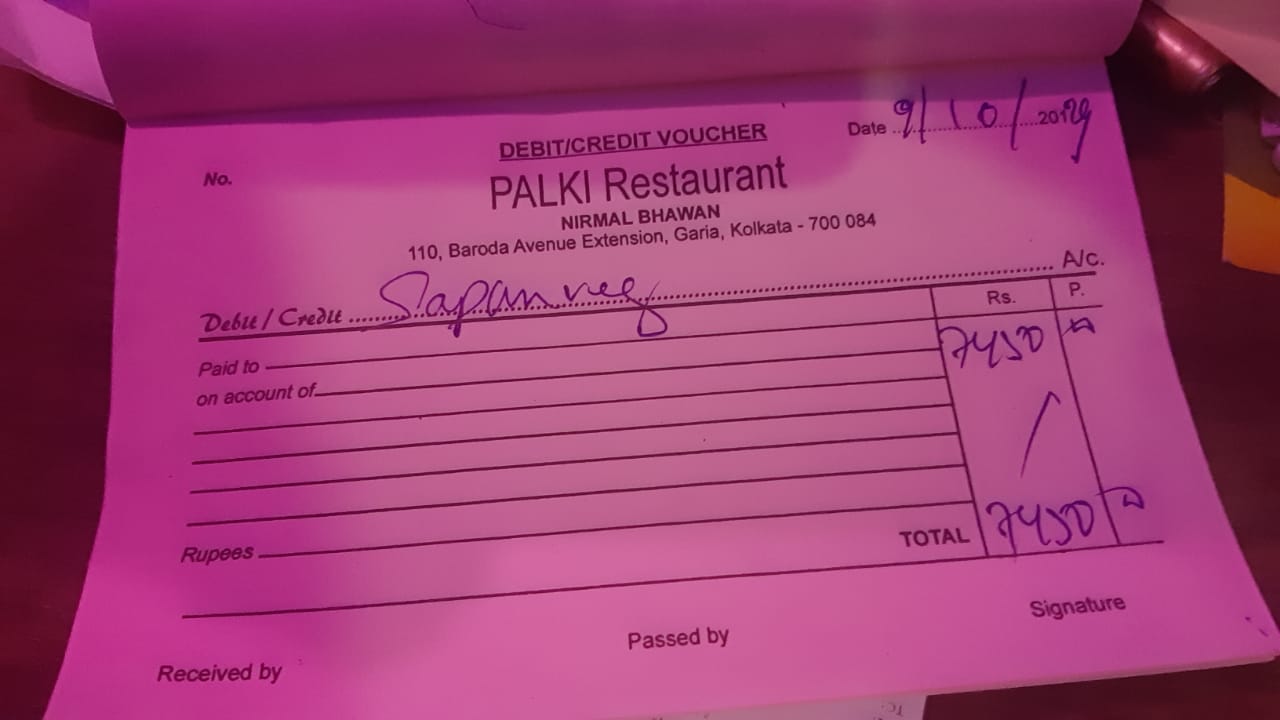 DEBIT/CREDIT VOUCHER
Date 9/10/2019
No.
PALKI Restaurant
NIRMAL BHAWAN
110, Baroda Avenue Extension, Garia, Kolkata - 700 084
Debit / Credit Sapan veg A/c.
Rs. P.
Paid to 7450
on account of
Rupees
TOTAL 7450
Signature
Passed by
Received by